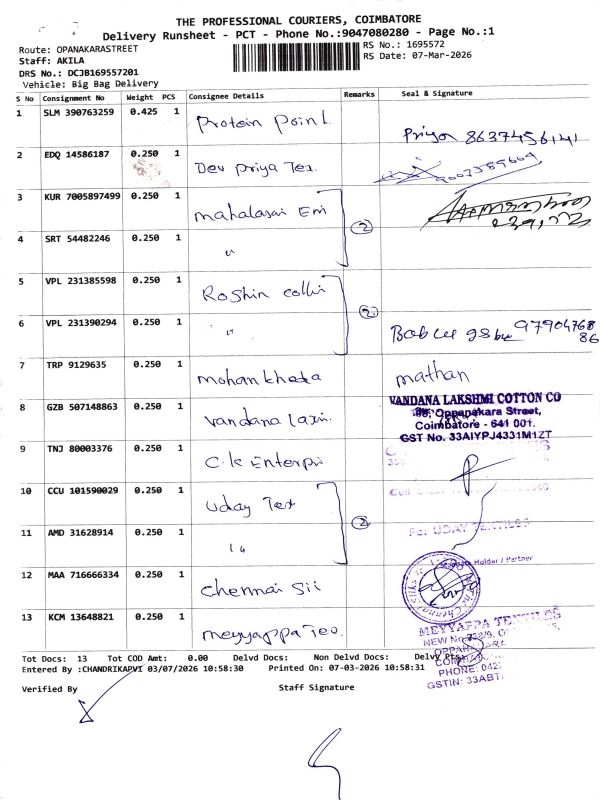 THE PROFESSIONAL COURIERS, COIMBATORE
Delivery Runsheet - PCT - Phone No.:9047080280 - Page No.:1
Route: OPANAKARASTREET
RS No.: 1695572
Staff: AKILA
RS Date: 07-Mar-2026
DRS No.: DCJB169557201
Vehicle: Big Bag Delivery
S No Consignment No Weight PCS Consignee Details Remarks Seal & Signature
1 SLM 390763259 0.425 1 Protein Point
Priya 8637456141
2 EDQ 14586187 0.250 1 Dev Priya Tex.
3 KUR 7005897499 0.250 1 mahalaxmi Em
2
4 SRT 54482246 0.250 1 "
5 VPL 231385598 0.250 1 Roshin
2
6 VPL 231390294 0.250 1 "
9790476886
7 TRP 9129635 0.250 1 mohan
mathan
8 GZB 507148863 0.250 1 Vandana Laxmi
VANDANA LAKSHMI COTTON CO
Oppanakara Street,
Coimbatore - 641 001.
GST No. 33AIYPJ4331M1ZT
9 TNJ 80003376 0.250 1 C.K Enterpri
10 CCU 101590029 0.250 1 Uday Tex
2
11 AMD 31628914 0.250 1 "
For UDAY TEXTILES
Holder / Partner
12 MAA 716666334 0.250 1 Chennai Sil
13 KCM 13648821 0.250 1 meyyappa Tex.
MEYYAPPA TEXTILES
NEW No.
PHONE: 042
GSTIN: 33ABT
Tot Docs: 13 Tot COD Amt: 0.00 Delvd Docs: Non Delvd Docs: Delvy Pts:
Entered By :CHANDRIKAPVI 03/07/2026 10:58:30 Printed On: 07-03-2026 10:58:31
Verified By Staff Signature